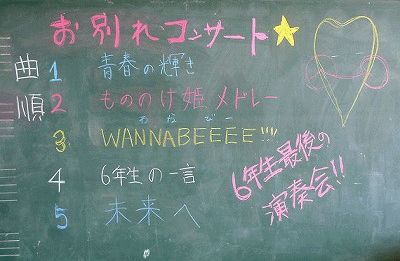 お別れコンサート☆
曲順
1 青春の輝き
2 もののけ姫メドレー
わなびー
3 WANNABEEEE!!!
4 6年生の一言
5 未来へ
6年生最後の
演奏会!!